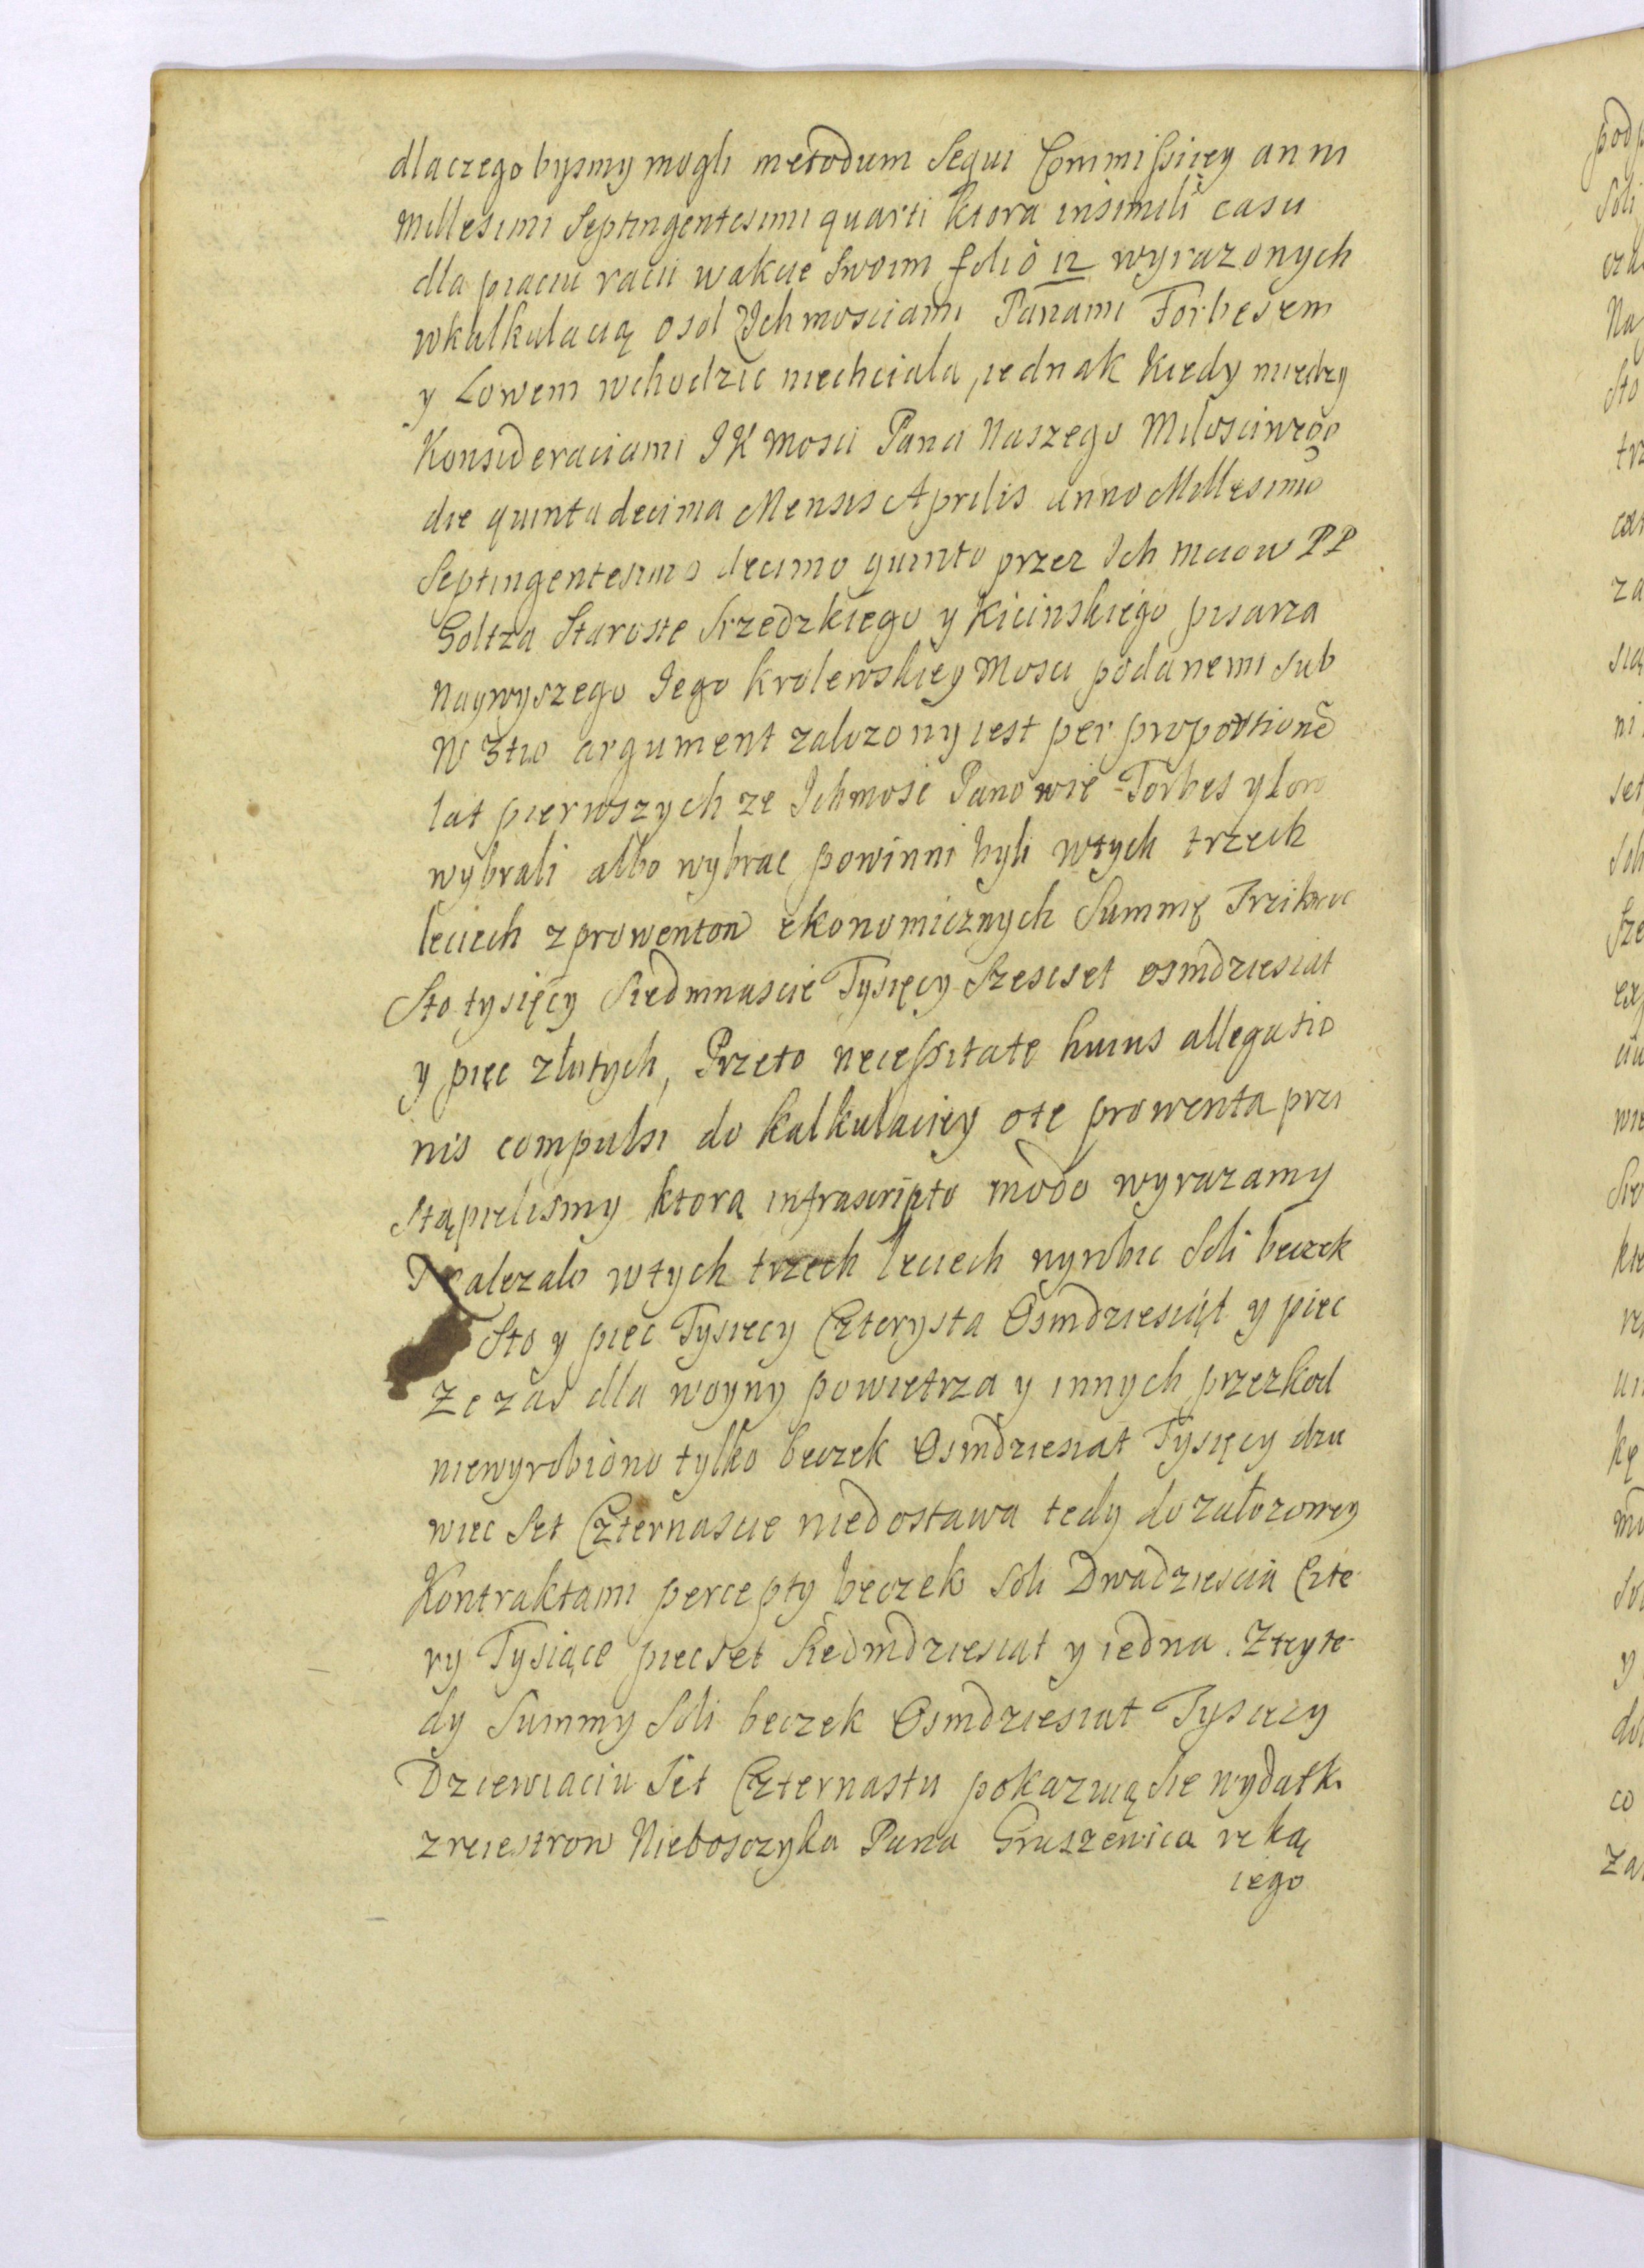 dlaczego bysmy mogli metodum Sequi Commissiiey anni
Millesimi Septingentesimi quarti ktora insimili casu
dla piaciu racii wakcie Swoim folio 12 wyrazonych
wkalkulacią osol Ichmosciami Panami Forbesem
y Lowem wchodzic niechciala, iednak kiedy miedzy
Konsideraciami IK Mosci Pana Naszego Miłosciwego
die quinta decima Mensis Aprilis anno Millesimo
Septingentesimo decimo quinto przez Ich Mciow PP
Goltza Staroste Srzedzkiego y Kicinskiego pisarza
Naywyszego Iego krolewskiey Mosci podanemi sub
N 3tio argument zalozony iest per proportionẽ
lat pierwszych ze Ichmosc Panowie Forbes y Low
wybrali albo wybrac powinni byli wtych trzech
leciech zprowentow ekonomicznych Summę Trzikroc
Sto tysięcy Siedmnascie Tysięcy Szescset osmdziesiat
y pięc złotych, Przeto necessitate huius allegatio
nis compulsi do kalkulaciey ote prowenta przi
stąpielismy ktorą infrascripto modo wyrazamy
Nalezalo wtych trzech leciech wyrobic Soli beczek
Sto y piec Tysiecy Czterysta Osmdziesiąt y piec
Ze zas dla woyny powietrza y innych przezkod
niewyrobiono tylko beczek Osmdziesiat Tysięcy dzie
wiec Set Czternascie niedostawa tedy do załozoney
Kontraktami percepty beczek Soli Dwadziescia Czte-
ry Tysiące piecset Siedmdziesiąt y iedna. Zteyte-
dy Summy Soli beczek Osmdziesiat Tysiecy
Dziewiaciu Set Czternastu pokazuią sie wydatki
zreiestrow Nieboszczyka Pana Gruszewica ręką
iego